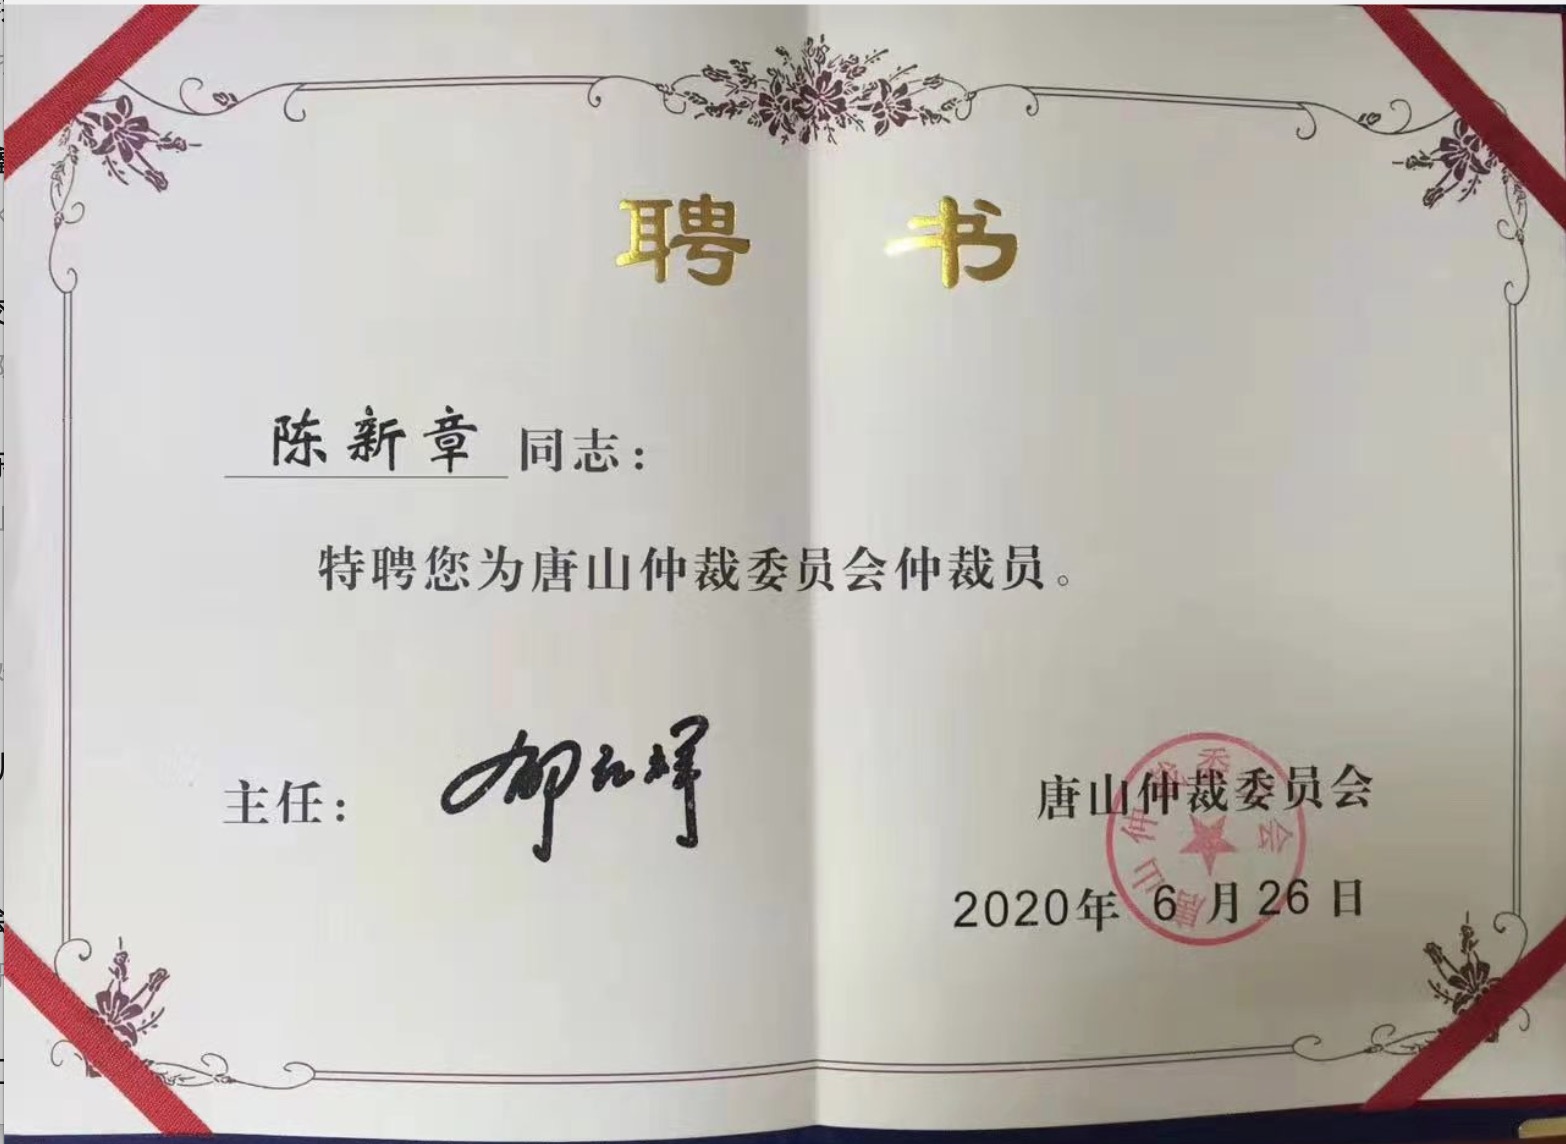 聘 书
陈新章 同志：
特聘您为唐山仲裁委员会仲裁员。
主任：
唐山仲裁委员会
2020年 6 月 26 日
唐山仲裁委员会